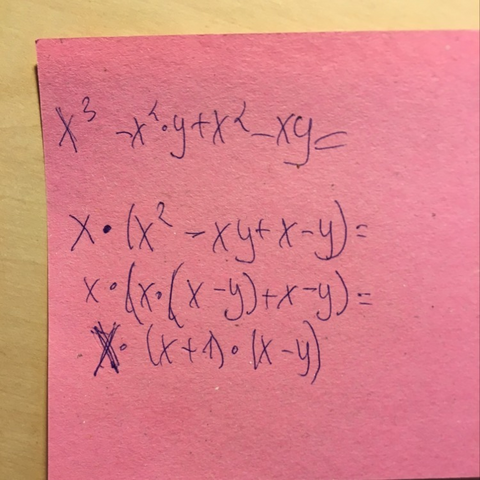 x³ -x²·y+x²-xy=
x·(x²-xy+x-y)=
x·(x·(x-y)+x-y)=
x·(x+1)·(x-y)